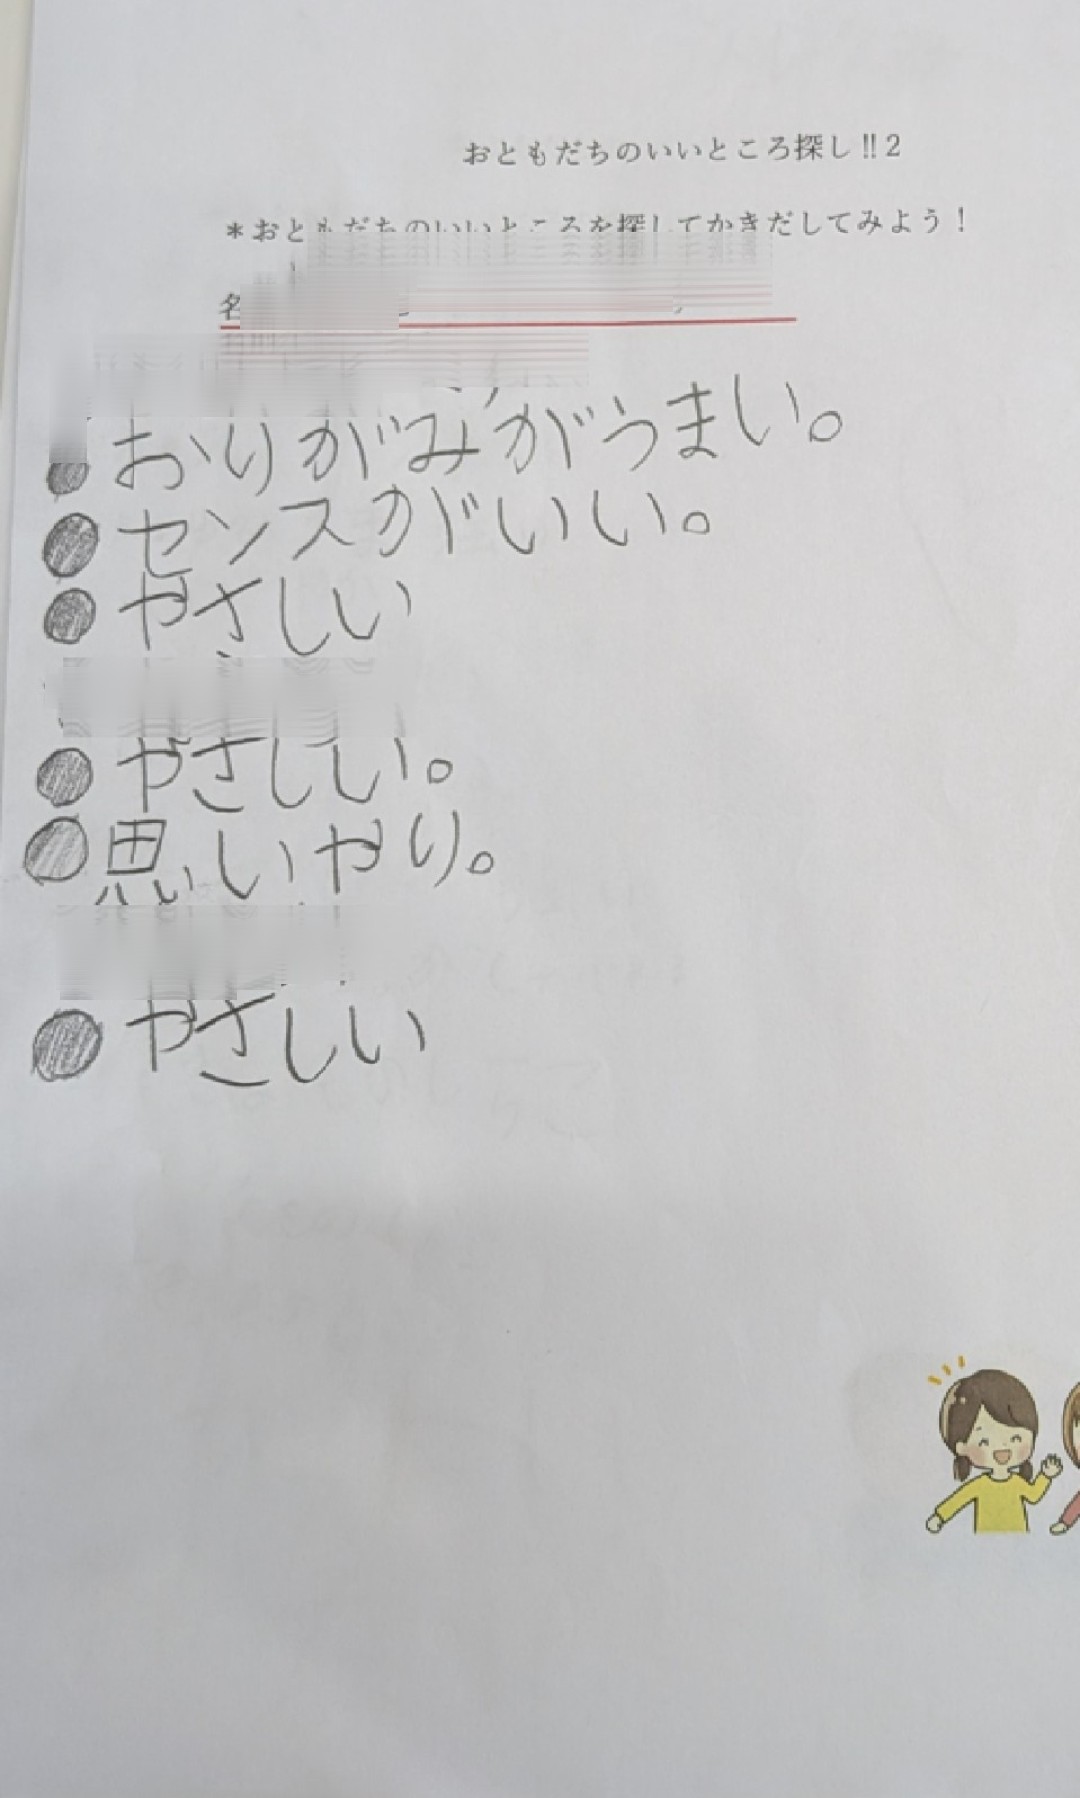 おともだちのいいところ探し!!2
*おともだちのいいところを探してかきだしてみよう!
名
おりがみがうまい。
センスがいい。
やさしい
やさしい。
思いやり。
やさしい